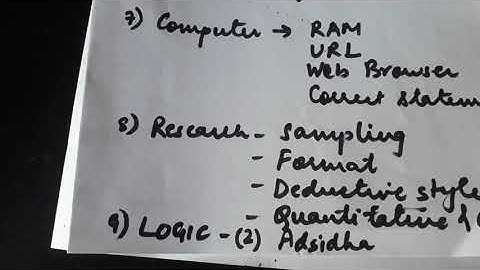 7) Computer → RAM
URL
Web Browser
Correct Statem
8) Research - Sampling
- Format
- Deductive style
- Quantitative &
9) LOGIC - (2) Adsidha